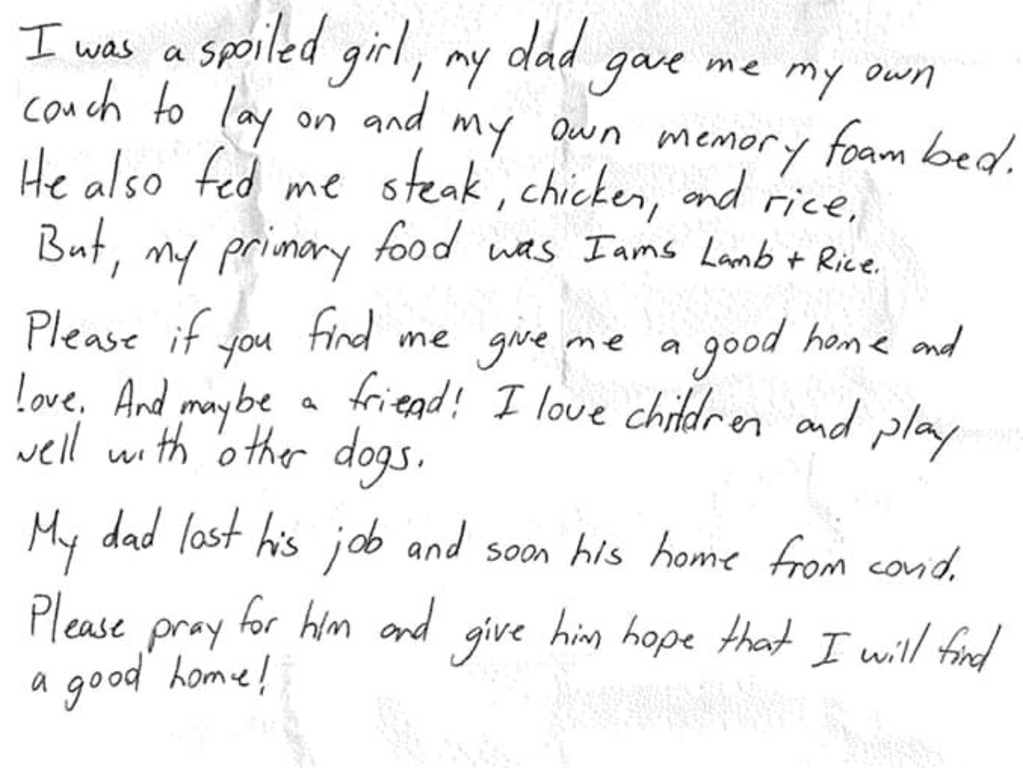 I was a spoiled girl, my dad gave me my own
couch to lay on and my own memory foam bed.
He also fed me steak, chicken, and rice.
But, my primary food was Iams Lamb + Rice.
Please if you find me give me a good home and
love. And maybe a friend! I love children and play
well with other dogs.
My dad lost his job and soon his home from covid.
Please pray for him and give him hope that I will find
a good home!